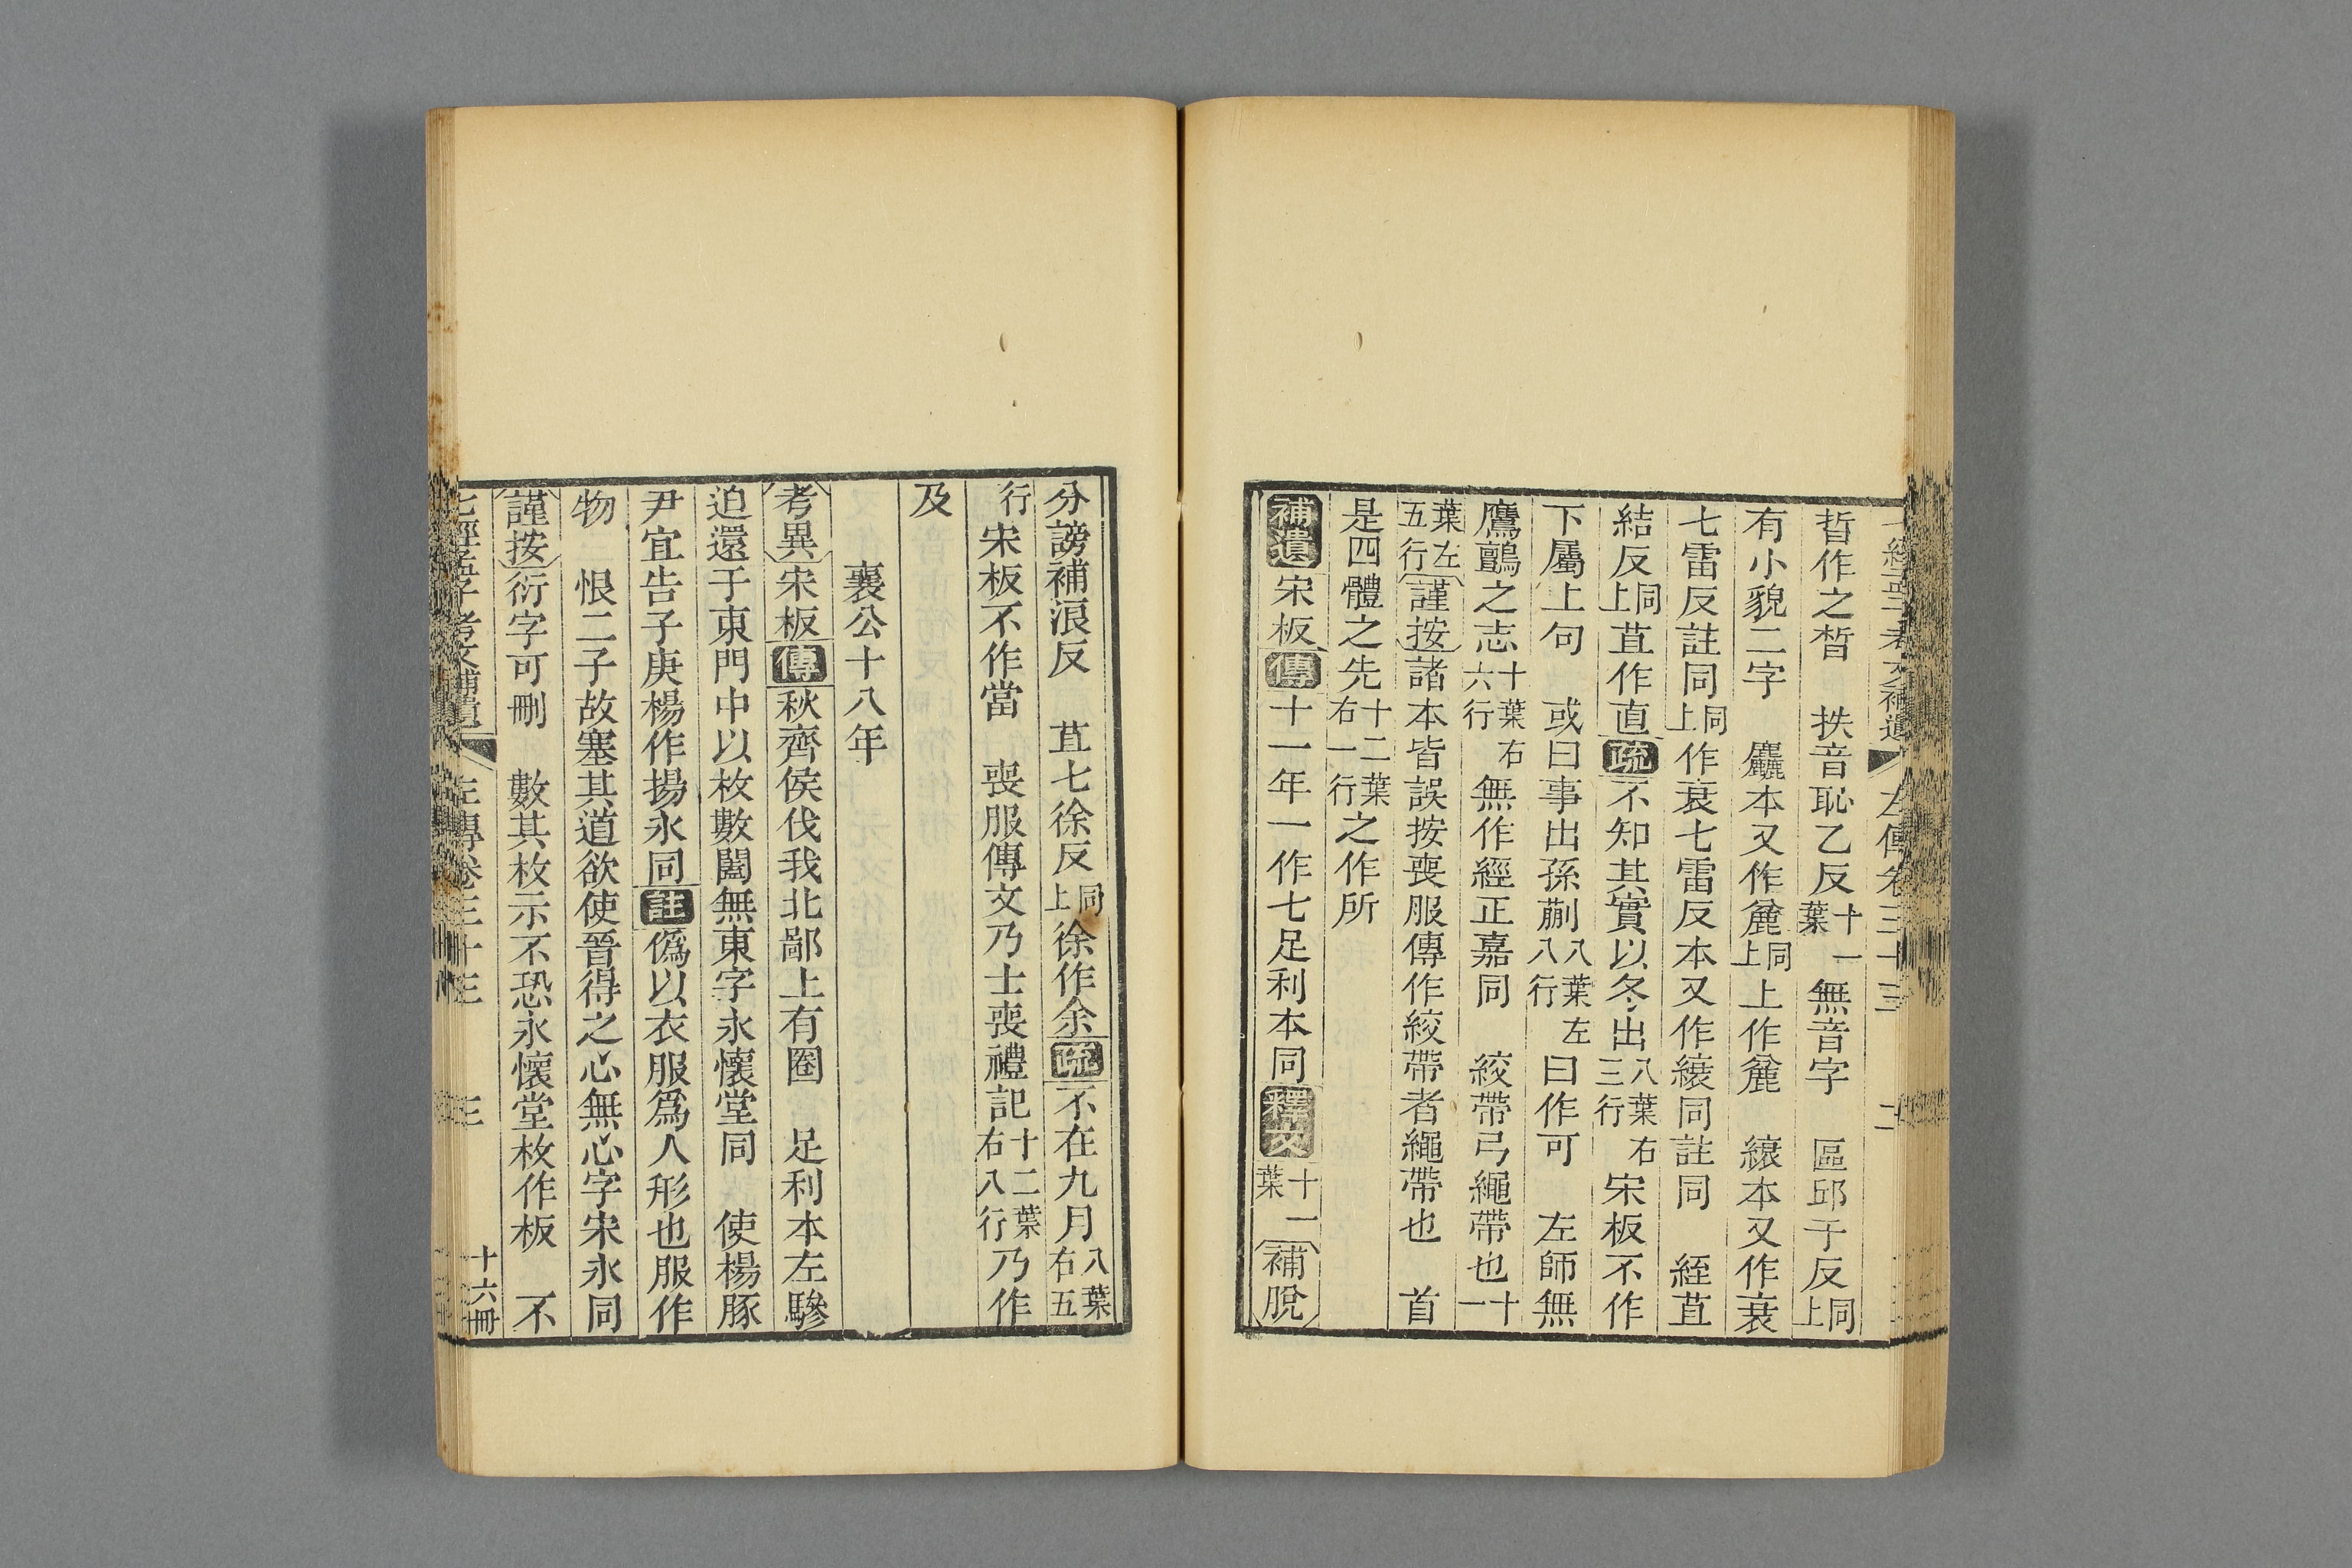 左傳卷三十三 二
晳作之晳 抶音恥乙反十一葉無音字 區邱于反同上
有小貌二字 麤本又作麄同上上作麄 縗本又作衰
七雷反註同同上作衰七雷反本又作縗同註同 絰苴
結反同上苴作直疏不知其實以冬出八葉右三行宋板不作
下屬上句 或曰事出孫蒯八葉左八行曰作可 左師無
鷹鸇之志十葉右六行無作經正嘉同 絞帶弓繩帶也十一
葉左五行謹按諸本皆誤按喪服傳作絞帶者繩帶也 首
是四體之先十二葉右一行之作所
補遺宋板傳十一年一作七足利本同釋文十一葉補脫
分謗補浪反 苴七徐反同上徐作余疏不在九月八葉右五
行宋板不作當 喪服傳文乃士喪禮記十二葉右八行乃作
及
襄公十八年
考異宋板傳秋齊侯伐我北鄙上有圈 足利本左驂
迫還于東門中以枚數闔無東字永懷堂同 使楊豚
尹宜告子庚楊作揚永同註僞以衣服爲人形也服作
物 恨二子故塞其道欲使晉得之心無心字宋永同
謹按衍字可刪 數其枚示不恐永懷堂枚作板 不
七經孟子考文補遺 左傳卷三十三 三 十六冊